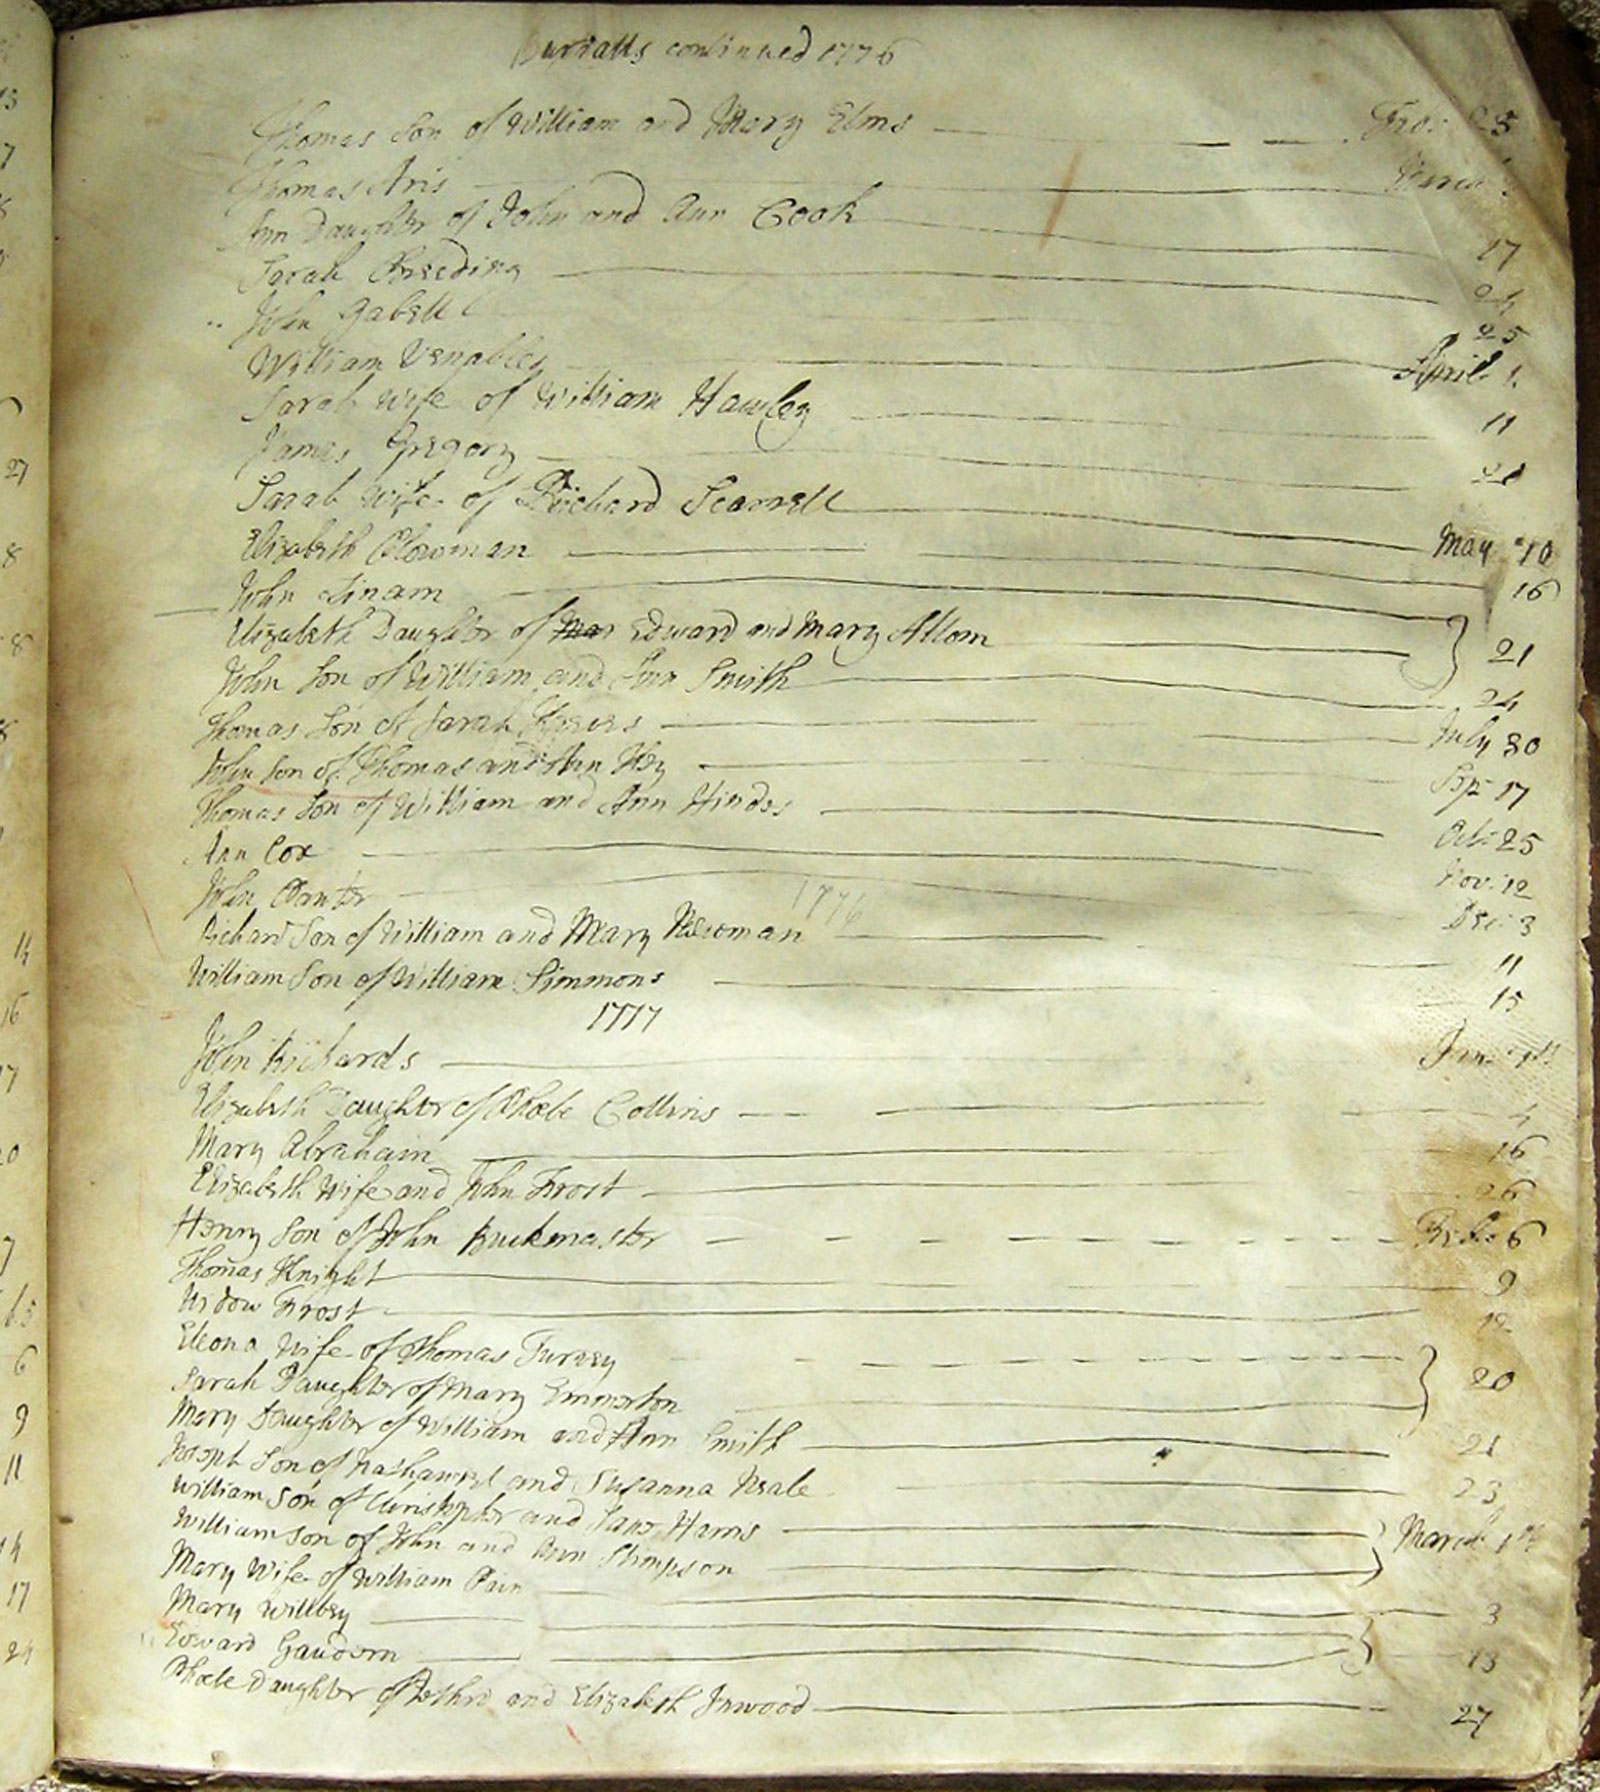 Burialls continued 1776
Thomas Son of William and Mary Elms 25
Thomas Aris March
Ann Daughter of John and Ann Cook 17
Sarah 24
John Gabell 25
William Venables April 1
Sarah Wife of William Hawley 11
James Gregory 21
Sarah wife of Richard Scarsell
Elizabeth Plowman May 10
John Tinam 16
Elizabeth Daughter of Mar Edward and Mary Allom 21
John Son of William and Ann Smith 24
Thomas Son of Sarah July 30
John Son of Thomas and Ann Key Sep 17
Thomas Son of William and Ann Hindes Oct: 25
Ann Cox Nov: 12
John Dec: 3
1776
Richard Son of William and Mary Newman 11
William Son of William Simmons 15
1777
John Richards Jan:
Elizabeth Daughter of Phœbe Collins 4
Mary Abraham 16
Elizabeth Wife and John Frost 26
Henry Son of John Buckmaster Feb: 6
Thomas Knight 9
Widow Frost 12
Eleona Wife of Thomas Turvey
Sarah Daughter of Mary Emmerton 20
Mary Daughter of William and Ann Smith 21
Joseph Son of Nathaniel and Susanna Neale 23
William Son of Christopher and Jane Harris March 1st
William Son of John and Ann Stimpson
Mary Wife of William Pain 3
Mary Willbey
Edward Gaudern 13
Phœbe Daughter of Jethro and Elizabeth Inwood 27
13
7
8
27
8
8
8
14
16
17
20
7
6
9
11
14
17
24